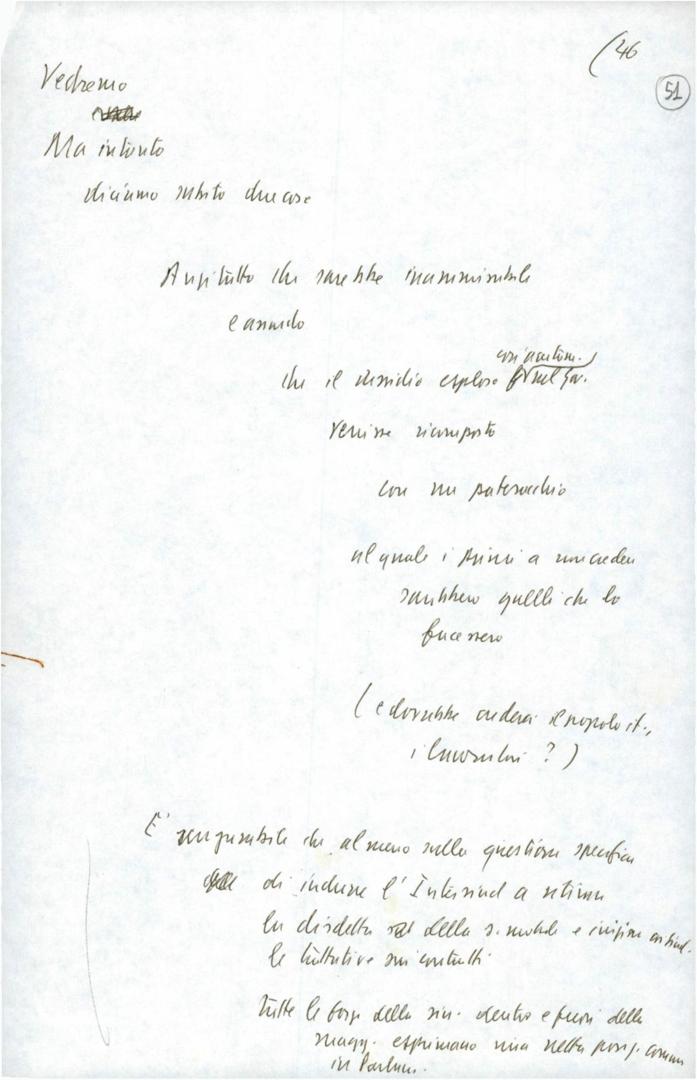 (46
51
Vedremo
Ma intanto
diciamo subito due cose
Anzitutto che sarebbe inammissibile
e assurdo
così acutam.
che il dissidio esploso nel Gov.
venisse ricomposto
con un pateracchio
al quale i primi a non creder
sarebbero quelli che lo
facessero
(e dovrebbe crederci il popolo it.,
i lavoratori?)
E' impensabile che almeno sulla questione specifica
di indurre l'Intersind a ritirare
la disdetta della s. mobile e iniziare
le trattative sui contratti
tutte le forze della sin. dentro e fuori della
magg. esprimano una netta posiz. comune
in Parlam.